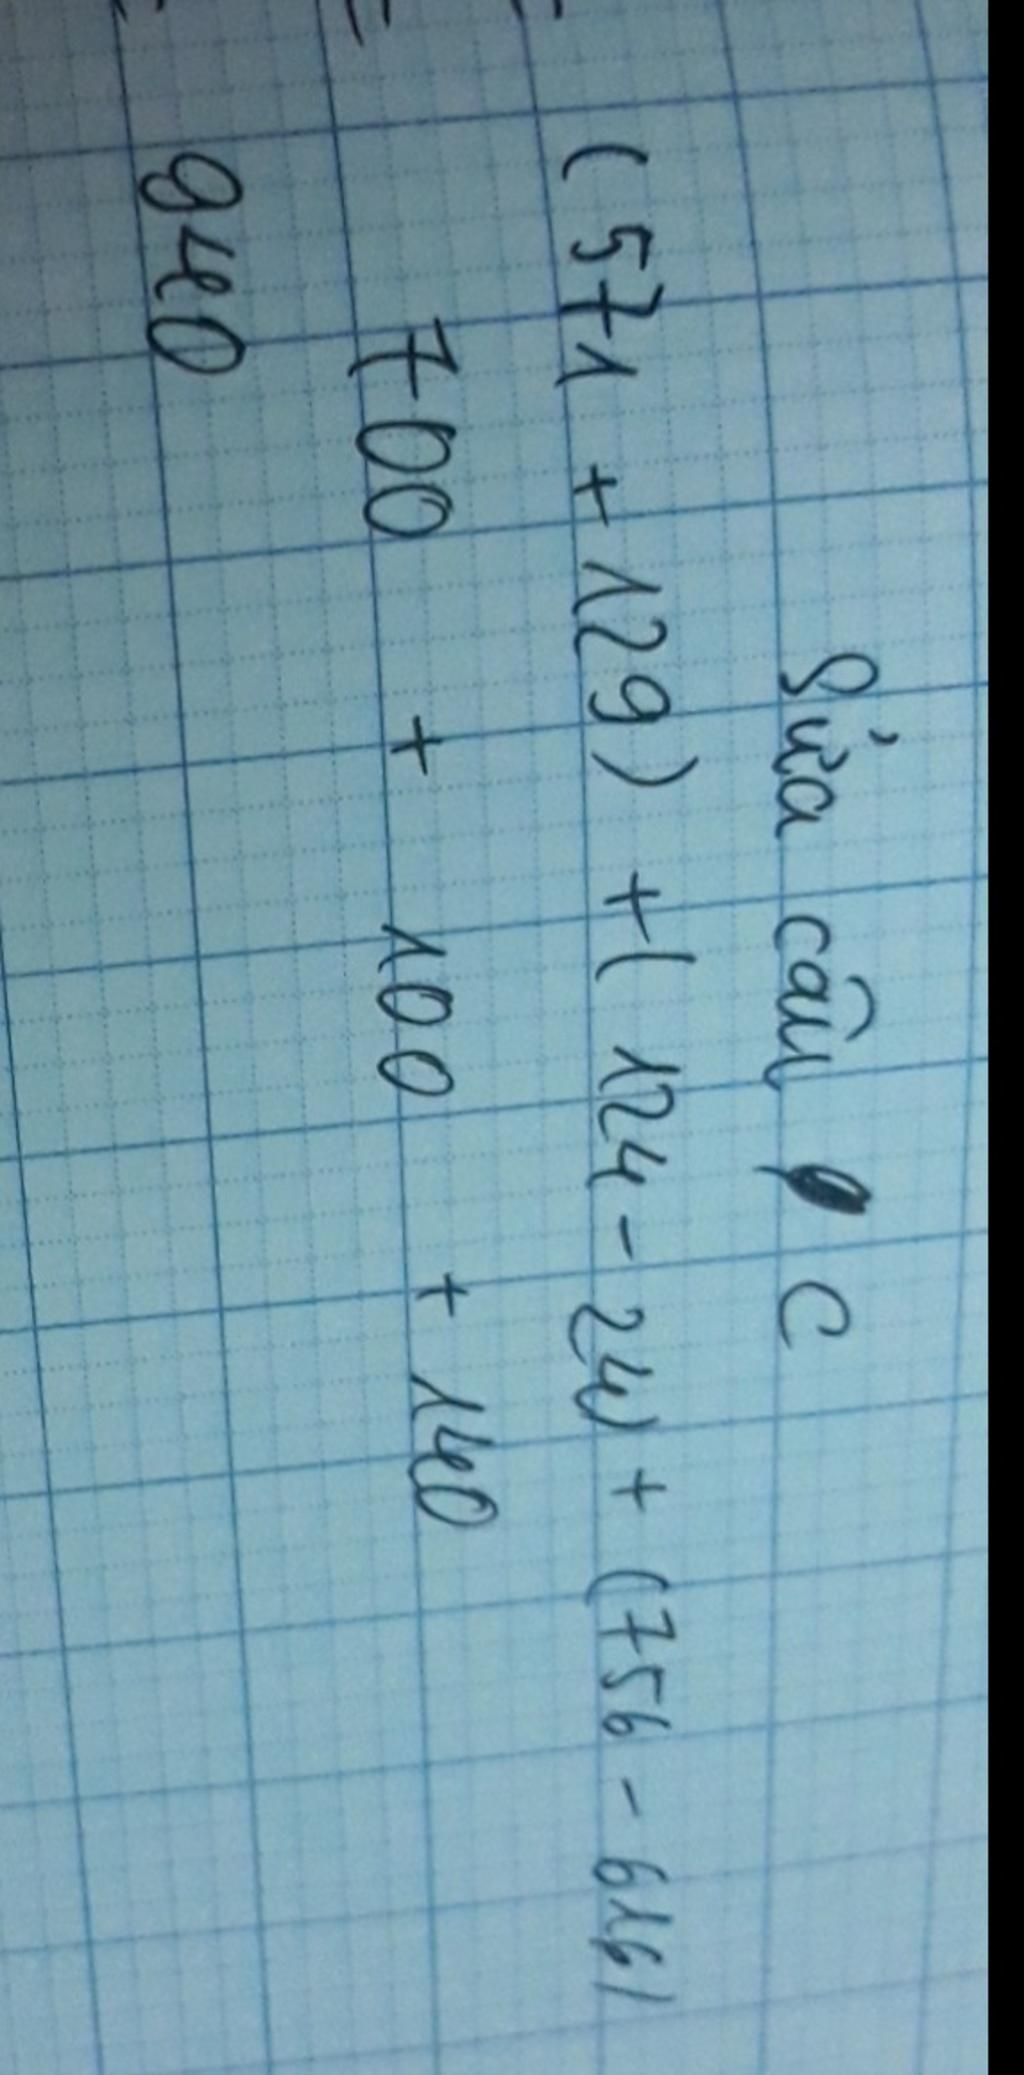 Sửa câu C
= (571 + 129) + (124 - 24) + (756 - 616)
= 700 + 100 + 140
= 940